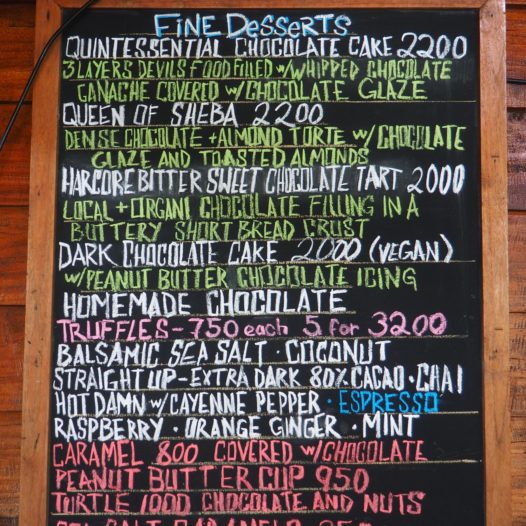 FINE DESSERTS
QUINTESSENTIAL CHOCOLATE CAKE 2200
3 LAYERS DEVILS FOOD FILLED w/WHIPPED CHOCOLATE
GANACHE COVERED w/CHOCOLATE GLAZE
QUEEN OF SHEBA 2200
DENSE CHOCOLATE + ALMOND TORTE w/ CHOCOLATE
GLAZE AND TOASTED ALMONDS
HARCORE BITTER SWEET CHOCOLATE TART 2000
LOCAL + ORGANI CHOCOLATE FILLING IN A
BUTTERY SHORT BREAD CRUST
DARK CHOCOLATE CAKE 2000 (VEGAN)
w/PEANUT BUTTER CHOCOLATE ICING
HOMEMADE CHOCOLATE
TRUFFLES - 750 each 5 for 3200
BALSAMIC SEA SALT · COCONUT
STRAIGHT UP - EXTRA DARK 80% CACAO · CHAI
HOT DAMN w/CAYENNE PEPPER · ESPRESSO
RASPBERRY · ORANGE GINGER · MINT
CARAMEL 800 COVERED w/CHOCOLATE
PEANUT BUTTER CUP 950
TURTLE 1000 CHOCOLATE AND NUTS